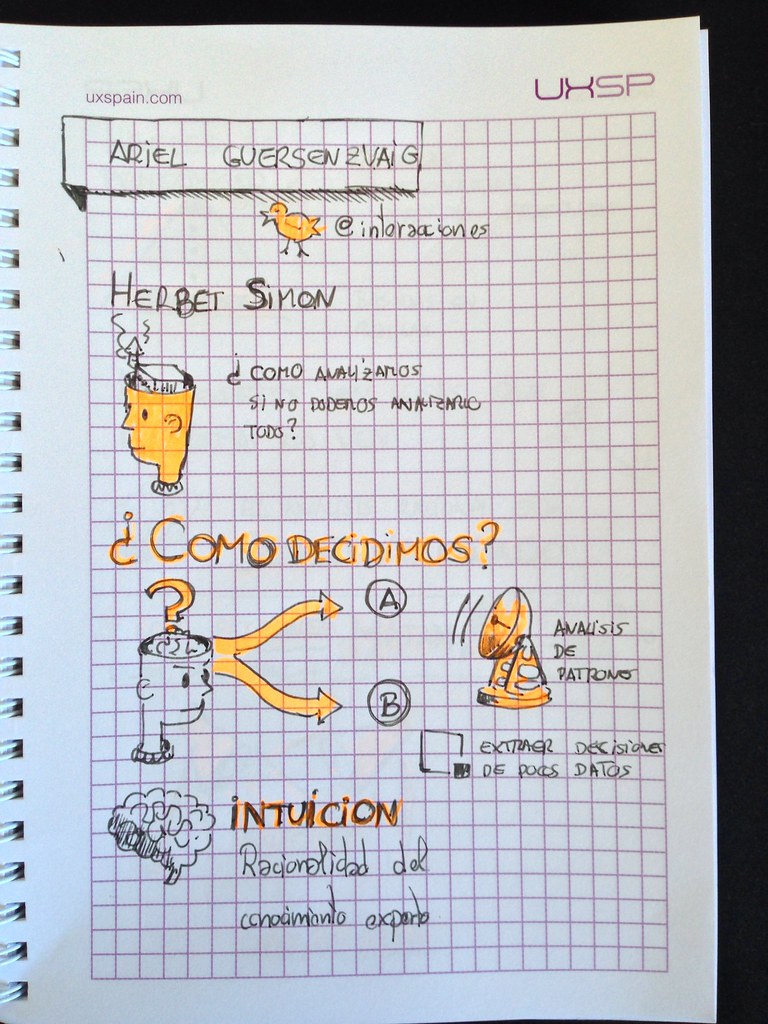 uxspain.com
UXSP
ARIEL GUERSENZVAIG
@interacciones
HERBET SIMON
¿COMO ANALIZAMOS
SI NO PODEMOS ANALIZARLO
TODO?
¿COMO DECIDIMOS?
?
A
B
ANALISIS
DE
PATRONO
EXTRAER DECISIONES
DE POCOS DATOS
INTUICION
Racionalidad del
conocimiento experto